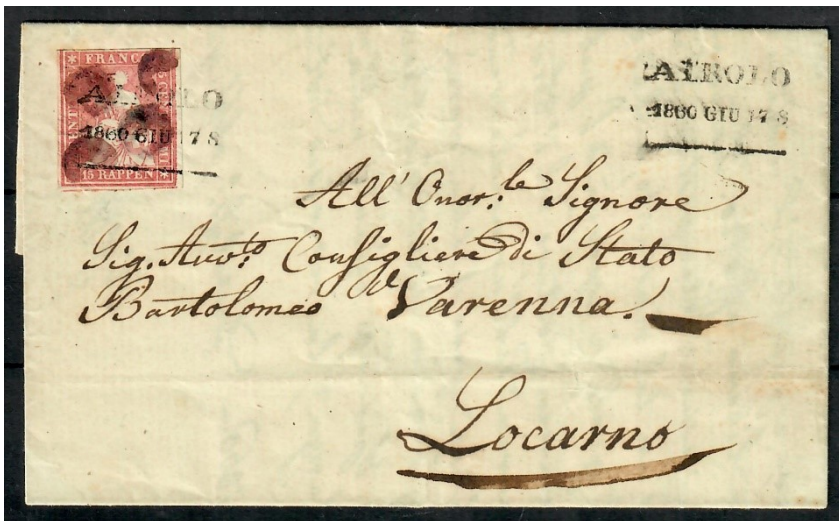 FRANCO
15 RAPPEN
AIROLO
1860 GIU 17 8
AIROLO
1860 GIU 17 8
All' Onor.le Signore
Sig. Avv.to Consigliere di Stato
Bartolomeo Varenna.
Locarno